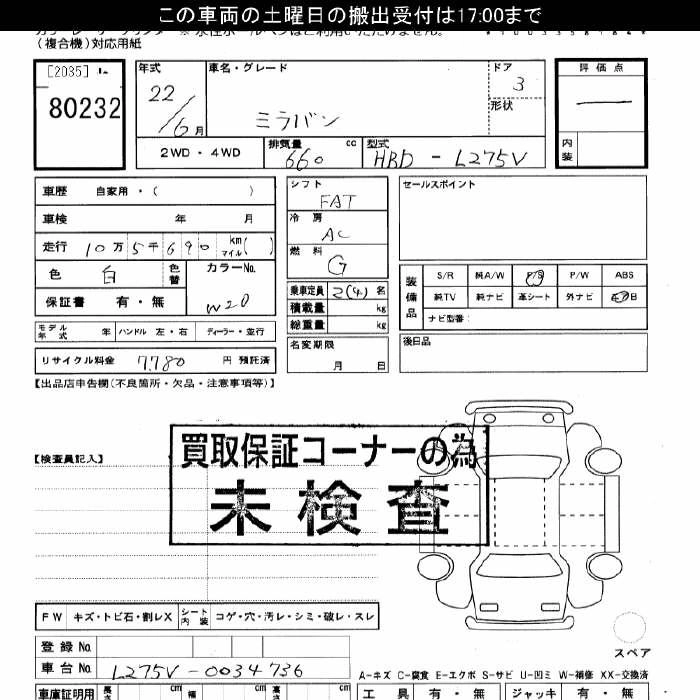 この車両の土曜日の搬出受付は17:00まで
(複合機)対応用紙
[2035]
80232
年式 22/6月
車名・グレード ミラバン
ドア 3
形状
評価点 —
内装
2WD・4WD
排気量 660 cc
型式 HBD - L275V
車歴 自家用・( )
車検 年 月
走行 10万5千690 km マイル( )
色 白 色替
カラーNo. W20
保証書 有・無
モデル年式 年 ハンドル 左・右 ディーラー・並行
リサイクル料金 7780 円 預託済
シフト FAT
冷房 AC
燃料 G
乗車定員 2(4)名
積載量 kg
総重量 kg
名変期限 月 日
セールスポイント
装備品
S/R 純A/W P/S P/W ABS
純TV 純ナビ 革シート 外ナビ
ナビ型番:
後日品
【出品店申告欄(不良箇所・欠品・注意事項等)】
【検査員記入】
買取保証コーナーの為
未検査
FW キズ・トビ石・割レX シート内装 コゲ・穴・汚レ・シミ・破レ・スレ
登録No.
車台No. L275V-0034736
スペア
A-キズ C-腐食 E-エクボ S-サビ U-凹ミ W-補修 XX-交換済
車庫証明用 長さ cm 幅 cm 高さ cm
工具 有・無 ジャッキ 有・無